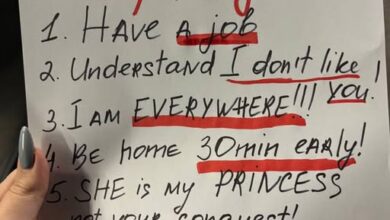 1. HAVE a job
2. Understand I don't like
YOU!
3. I AM EVERYWHERE!!!
4. Be home 30min early!
5. SHE is my PRINCESS
not your conquest!